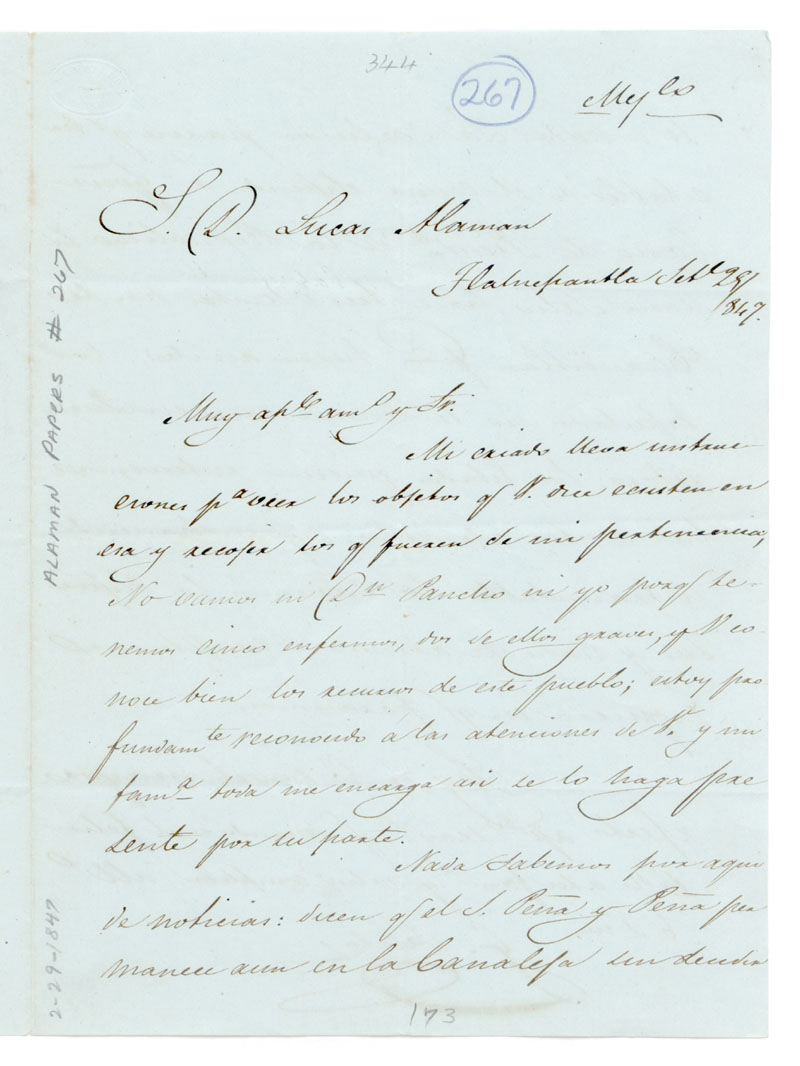 344
267
Mejco
S. D. Lucas Alaman
Tlalnepantla Setbe 28/
847.
Muy apbe amo y Sr.
Mi criado lleva instruc-
ciones pa ver los objetos q V. dice ecsisten en
esa y recojer los q fueren de mi pertenencia,
No vamos ni Dn Pancho ni yo porq te-
nemos cinco enfermos, dos de ellos graves, y V. co-
noce bien los recursos de este pueblo; estoy pro
fundamte reconocido á las atenciones de V. y mi
fama toda me encarga asi se lo haga pre
sente por su parte.
Nada sabemos por aqui
de noticias: dicen q el S. Peña y Peña per
manece aun en la Canaleja sin decidir
173
ALAMAN PAPERS # 267
2-29-1847